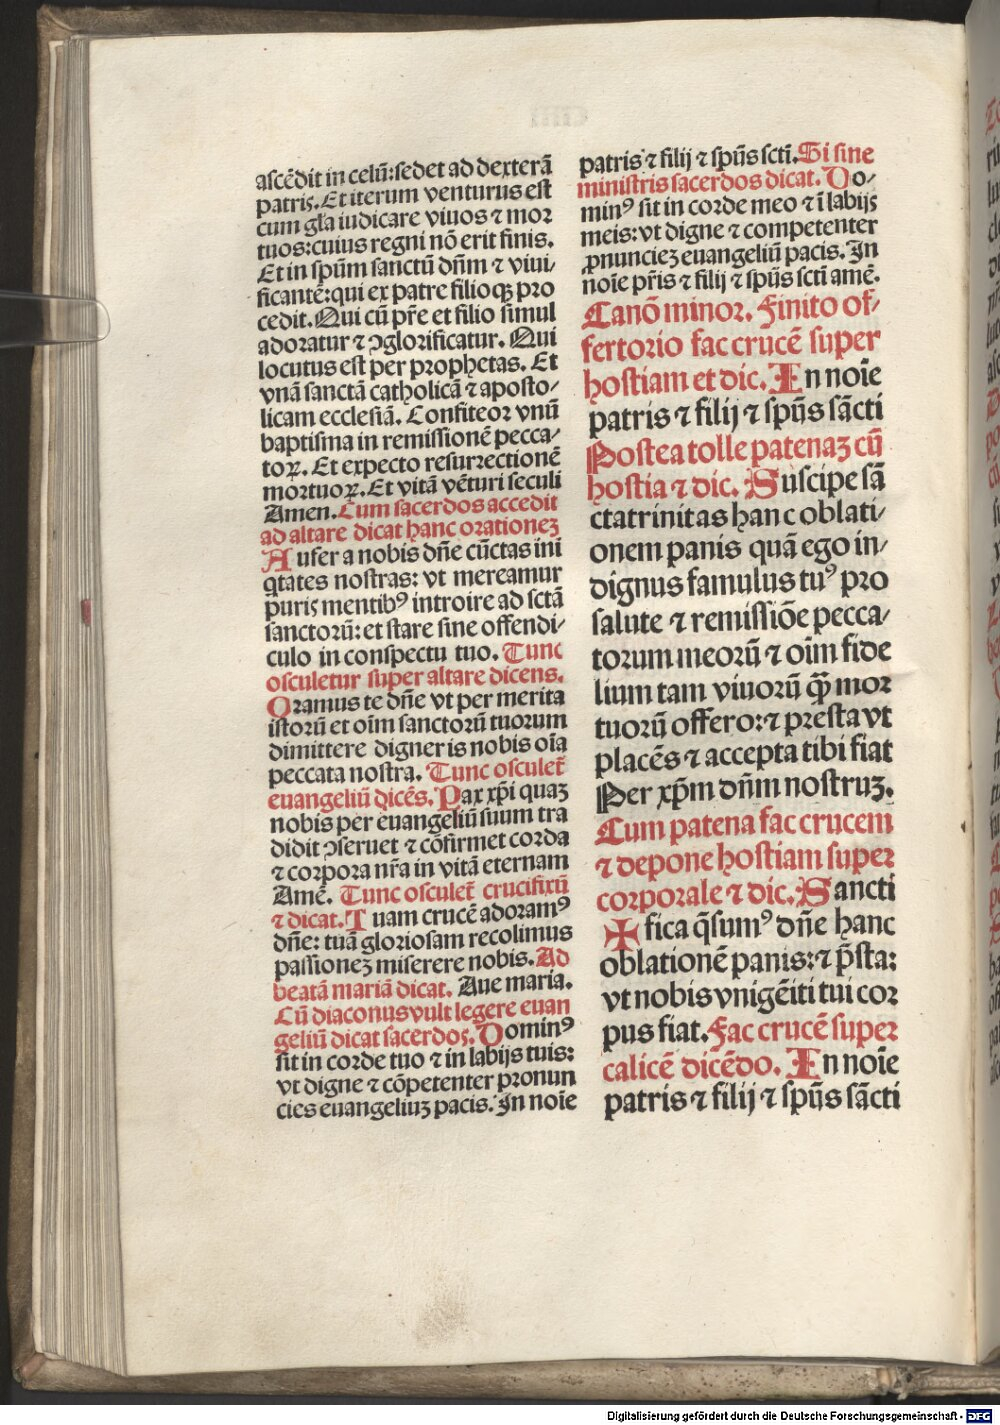 ascēdit in celū: sedet ad dexterā
patris. Et iterum venturus est
cum gl̄a iudicare viuos ⁊ mor
tuos: cuius regni nō erit finis.
Et in spūm sanctū dn̄m ⁊ viui⸗
ficantē: qui ex patre filioqꝫ pro
cedit. Qui cū pr̄e et filio simul
adoratur ⁊ ꝯglorificatur. Qui
locutus est per prophetas. Et
vnā sanctā catholicā ⁊ aposto⸗
licam ecclesiā. Confiteor vnū
baptisma in remissionē pecca⸗
toꝝ. Et expecto resurrectionē
mortuoꝝ. Et vitā vēturi seculi
Amen. Cum sacerdos accedit
ad altare dicat hanc orationeꝫ
Aufer a nobis dn̄e cūctas ini
q̇tates nostras: vt mereamur
puris mentibꝰ introire ad sctā
sanctorū: et stare sine offendi⸗
culo in conspectu tuo. Tunc
osculetur super altare dicens.
Oramus te dn̄e vt per merita
istorū et oīm sanctorū tuorum
dimittere digneris nobis oīa
peccata nostra. Tunc osculet̄
euangeliū dicēs. Pax xp̄i quaꝫ
nobis per euangeliū suum tra
didit ꝯseruet ⁊ cōfirmet corda
⁊ corpora nr̄a in vitā eternam
Amē. Tunc osculet̄ crucifixū
⁊ dicat. Tuam crucē adoramꝰ
dn̄e: tuā gloriosam recolimus
passioneꝫ miserere nobis. Ad
beatā mariā dicat. Aue maria.
Cū diaconus vult legere euan
geliū dicat sacerdos. Dominꝰ
sit in corde tuo ⁊ in labijs tuis:
vt digne ⁊ cōpetenter pronun
cies euangeliuꝫ pacis. In noīe
patris ⁊ filij ⁊ spūs sctī. Si sine
ministris sacerdos dicat. Do⸗
minꝰ sit in corde meo ⁊ ī labijs
meis: vt digne ⁊ competenter
ꝓnuncieꝫ euangeliū pacis. In
noīe pr̄is ⁊ filij ⁊ spūs sctī amē.
Canō minor. Finito of⸗
fertorio fac crucē super
hostiam et dic. In noīe
patris ⁊ filij ⁊ spūs sācti
Postea tolle patenaꝫ cū
hostia ⁊ dic. Suscipe sā
cta trinitas hanc oblati⸗
onem panis quā ego in⸗
dignus famulus tuꝰ pro
salute ⁊ remissiōe pecca⸗
torum meorū ⁊ oīm fide
lium tam viuorū q̄ꝫ mor
tuorū offero: ⁊ presta vt
placēs ⁊ accepta tibi fiat
Per xp̄m dn̄m nostruꝫ.
Cum patena fac crucem
⁊ depone hostiam super
corporale ⁊ dic. Sancti
✠ fica q̄sumꝰ dn̄e hanc
oblationē panis: ⁊ p̄sta:
vt nobis vnigēiti tui cor
pus fiat. Fac crucē super
calicē dicēdo. In noīe
patris ⁊ filij ⁊ spūs sācti
Digitalisierung gefördert durch die Deutsche Forschungsgemeinschaft - DFG